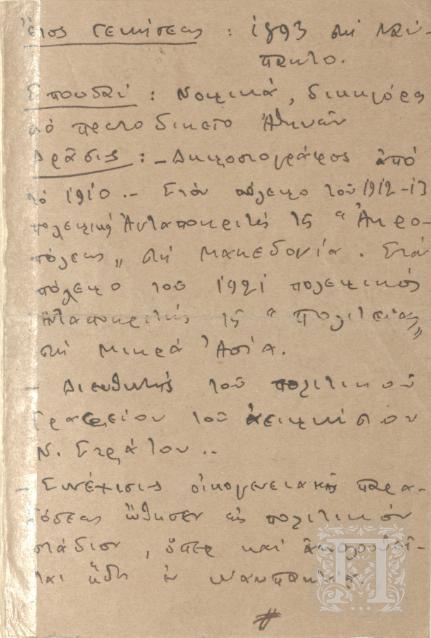 Ἔτος Γεννήσεως : 1893 στη Ναύ-
πακτο.
Σπουδαί : Νομικά, δικηγόρος
στό πρωτοδικείο Ἀθηνῶν
Δρᾶσις : - Δημοσιογράφος ἀπό
τό 1910.- Στόν πόλεμο τοῦ 1912-13
πολεμικός Ἀνταποκριτής τῆς "Ἀκρο-
πόλεως„ στη Μακεδονία. Στόν
πόλεμο τοῦ 1921 πολεμικός
Ἀνταποκριτής τῆς "Πολιτείας„
στη Μικρά Ἀσία.
- Διευθυντής τοῦ πολιτικοῦ
Γραφείου τοῦ ἀειμνήστου
Ν. Στράτου..
- Συνέχισις οἰκογενειακῆς παρα-
δόσεως ὤθησεν εἰς πολιτικόν
στάδιον, ὅπερ καί ἀκολουθεῖ-
ται ἤδη ἐν Ναυπακτίᾳ.